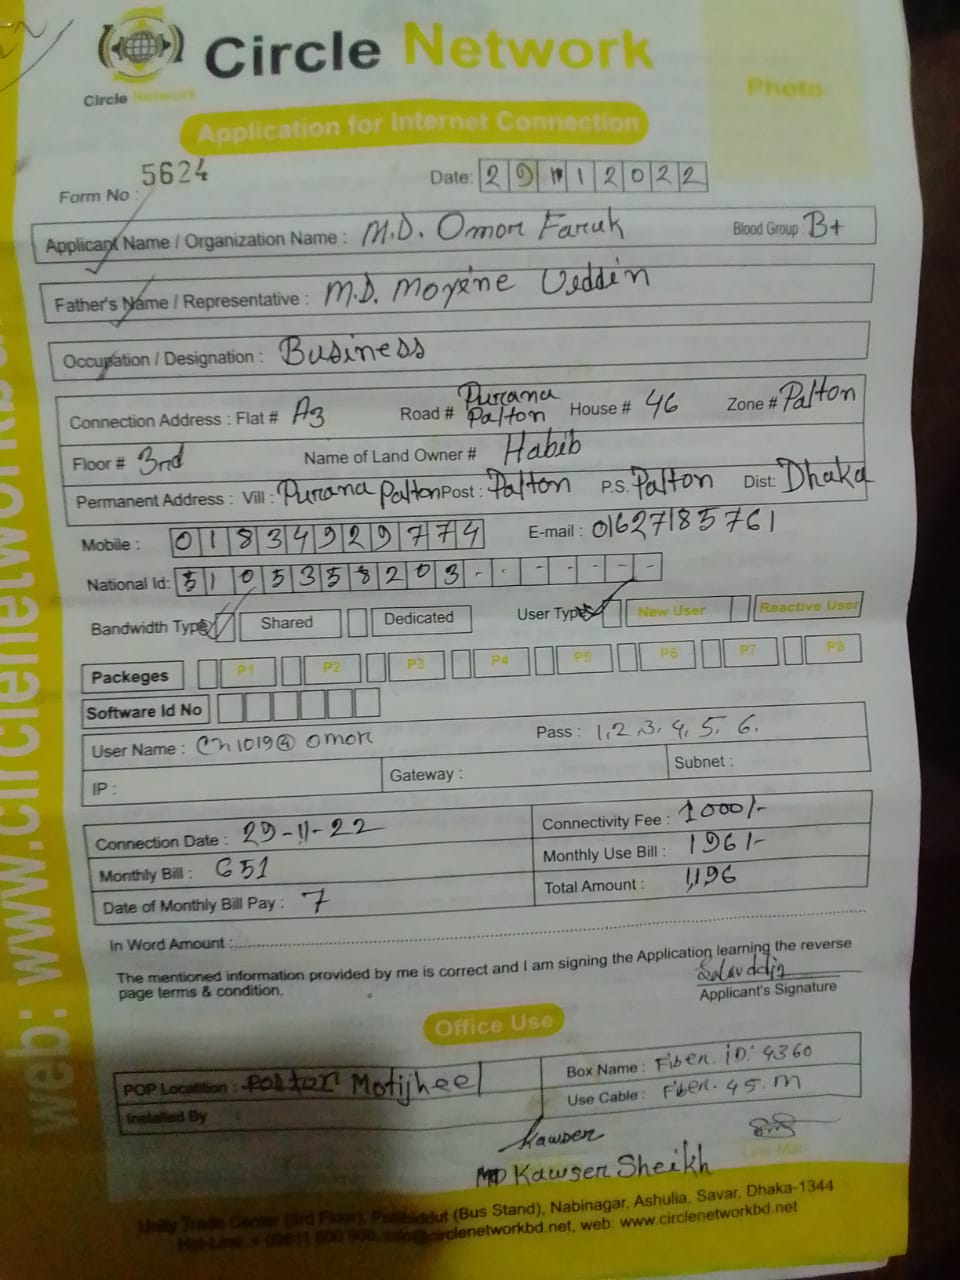 Circle Network
Circle Network
Photo
Application for Internet Connection
Form No : 5624
Date: 29 11 2022
Applicant Name / Organization Name : M.D. Omor Faruk Blood Group B+
Father's Name / Representative : M.D. Moyene Ueddin
Occupation / Designation : Business
Connection Address : Flat # A3 Road # Purana Palton House # 46 Zone # Palton
Floor # 3rd Name of Land Owner # Habib
Permanent Address : Vill : Purana Palton Post : Palton P.S. Palton Dist: Dhaka
Mobile : 01834929774 E-mail : 01627185761
National Id: 5105358203 - - - - - - -
Bandwidth Type Shared Dedicated User Type New User Reactive User
Packeges P1 P2 P3 P4 P5 P6 P7 P8
Software Id No
User Name : Cn1019@omor Pass : 1,2,3,4,5,6.
IP : Gateway : Subnet :
Connection Date : 29-11-22 Connectivity Fee : 1000/-
Monthly Bill : 651 Monthly Use Bill : 196/-
Date of Monthly Bill Pay : 7 Total Amount : 1,196
In Word Amount :
The mentioned information provided by me is correct and I am signing the Application learning the reverse
page terms & condition.
Salauddin
Applicant's Signature
Office Use
POP Location : Palton Motijheel Box Name : Fiber. iD: 4360
Installed By : Use Cable : Fiber. 45. m
Kawser
MD Kawser Sheikh
Line Man
Unity Trade Center (3rd Floor), Pallibiddut (Bus Stand), Nabinagar, Ashulia, Savar, Dhaka-1344
Hot-Line: + 09611 800 900, info@circlenetworkbd.net, web: www.circlenetworkbd.net
web: www.circlenetworkb